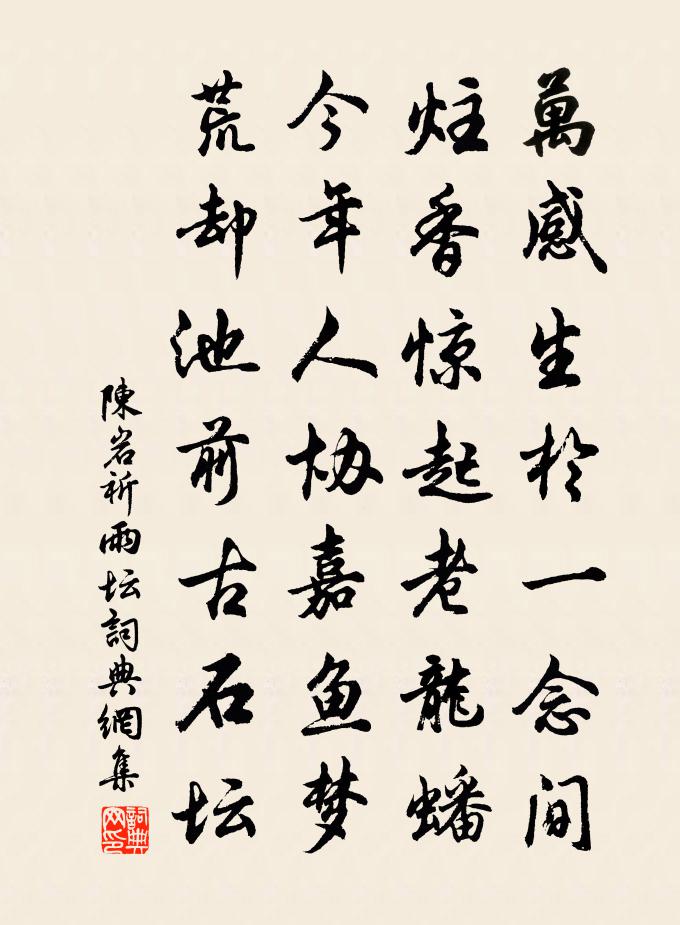 萬感生於一念间
炷香惊起老龍蟠
今年人协嘉鱼梦
荒却池前古石坛
陳岩祈雨坛詞典網集
詞典网印